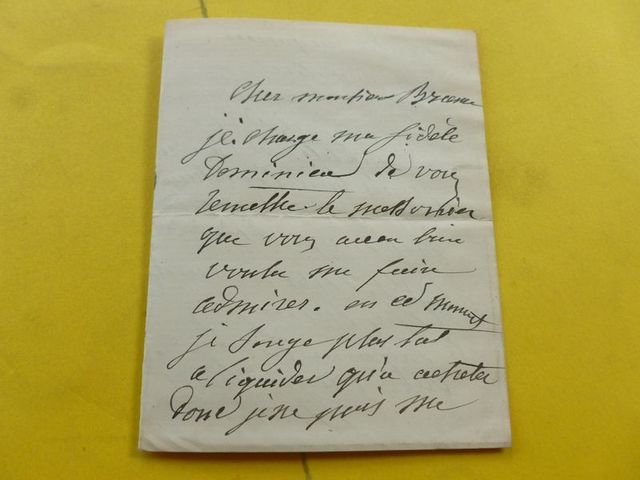 Cher monsieur
je charge ma fidèle
Dominica de vous
remettre le messonier
que vous avez bien
voulu me faire
admirer. en ce moment
je songe plus tot
a liquider qu'a acheter
donc je ne puis me